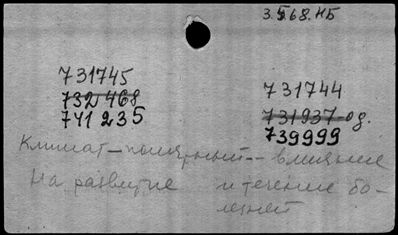 3.5.68.НБ
731745
732 468
741 235
731744
731937 од.
739999
Климат - полярный - влияние
на развитие и течение бо-
лезней